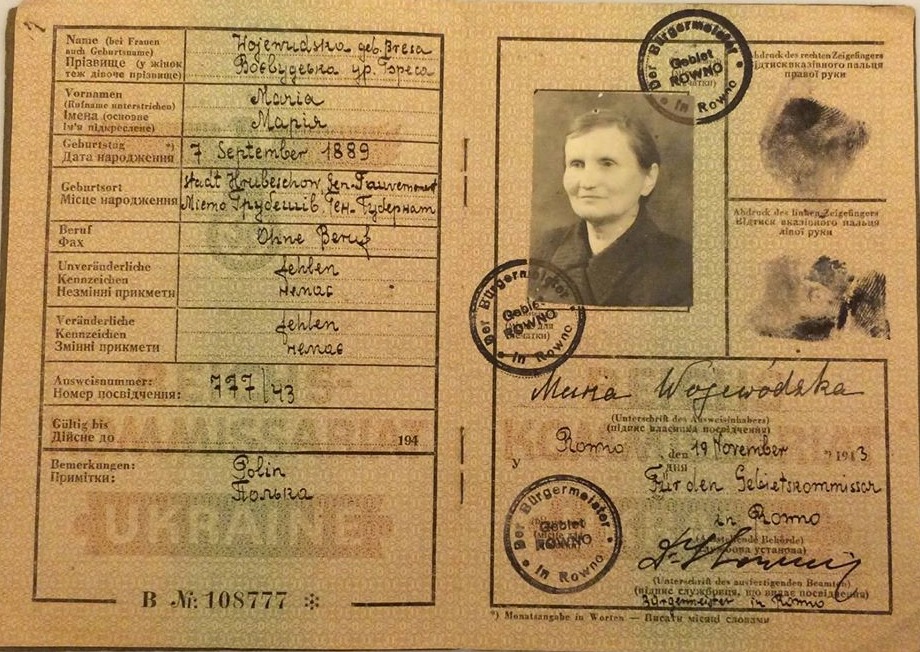 Name (bei Frauen
auch Geburtsname)
Прізвище (у жінок
теж дівоче прізвище)
Wojewudska geb. Bresa
Воєвудська ур. Бреса
Vornamen
(Rufname unterstrichen)
Імена (основне
ім'я підкреслене)
Maria
Марія
Geburtstag *)
Дата народження
7 September 1889
Geburtsort
Місце народження
Stadt Hrubeschow, Gen-Gauvernement
Місто Грубешів, Ген-Губернат
Beruf
Фах
Ohne Beruf
Unveränderliche
Kennzeichen
Незмінні прикмети
fehlen
немає
Veränderliche
Kennzeichen
Змінні прикмети
fehlen
немає
Ausweisnummer:
Номер посвідчення:
777/43
Gültig bis
Дійсне до 194
Bemerkungen:
Примітки:
Polin
Полька
UKRAINE
B № 108777 ✻
Der Bürgermeister
Gebiet
ROWNO
in Rowno
Abdruck des rechten Zeigefingers
Відтиск вказівного пальця
правої руки
Abdruck des linken Zeigefingers
Відтиск вказівного пальця
лівої руки
Der Bürgermeister
Gebiet
ROWNO
in Rowno
Maria Wojewódzka
(Unterschrift des Ausweisinhabers)
(підпис власника посвідчення)
У Rowno den 19 November *) 1943
дня
Für den Gebietskommissar
in Rowno
Der Bürgermeister
Gebiet
ROWNO
in Rowno
(Ausstellende Behörde)
(службова установа)
(Unterschrift des ausfertigenden Beamten)
(підпис службовця, що видає посвідчення)
Bürgermeister in Rowno
*) Monatsangabe in Worten — Писати місяці словами